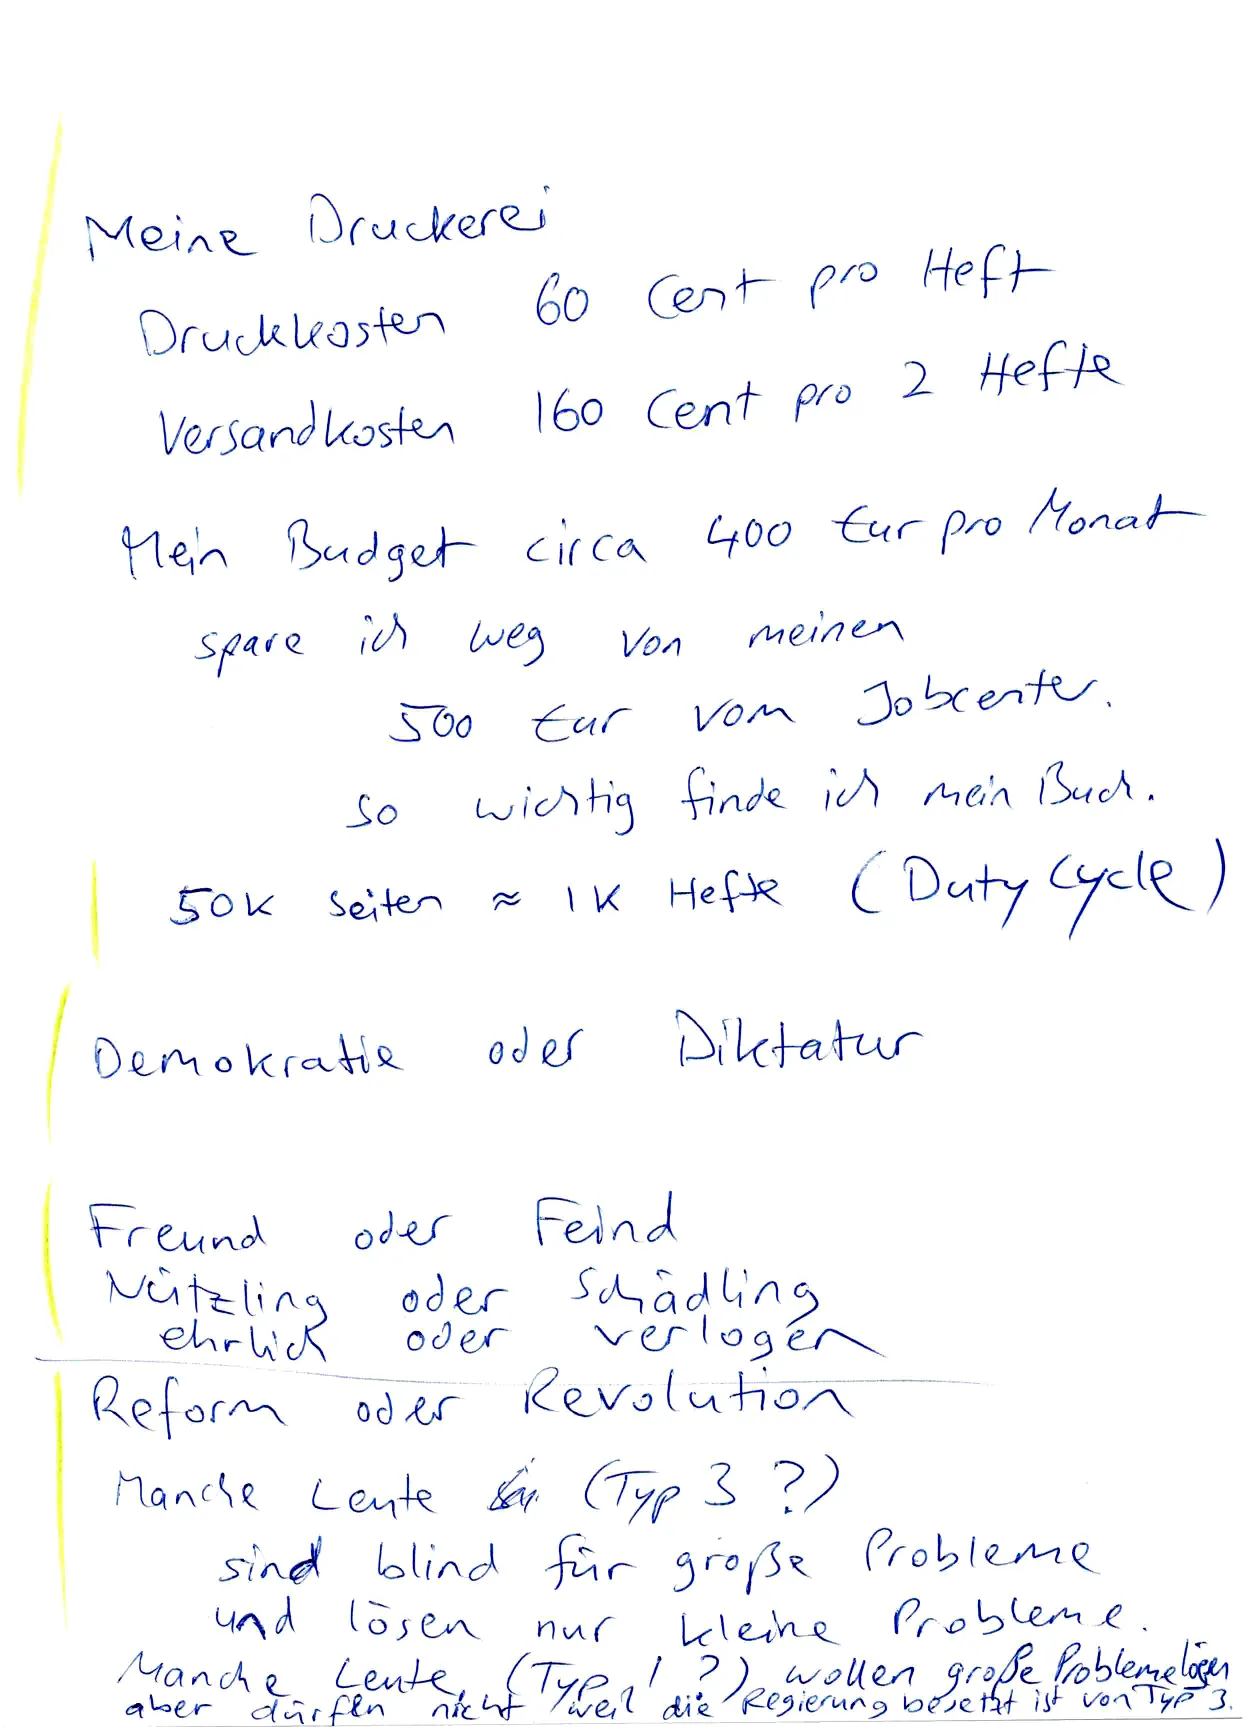 Meine Druckerei
Druckkosten 60 Cent pro Heft
Versandkosten 160 Cent pro 2 Hefte
Mein Budget circa 400 Eur pro Monat
spare ich weg von meinen
500 Eur vom Jobcenter.
so wichtig finde ich mein Buch.
50K Seiten ≈ 1K Hefte (Duty Cycle)
Demokratie oder Diktatur
Freund oder Feind
Nützling oder Schädling
ehrlich oder verlogen
Reform oder Revolution
Manche Leute (Typ 3 ?)
sind blind für große Probleme
und lösen nur kleine Probleme.
Manche Leute (Typ 1 ?) wollen große Probleme lösen
aber dürfen nicht weil die Regierung besetzt ist von Typ 3.